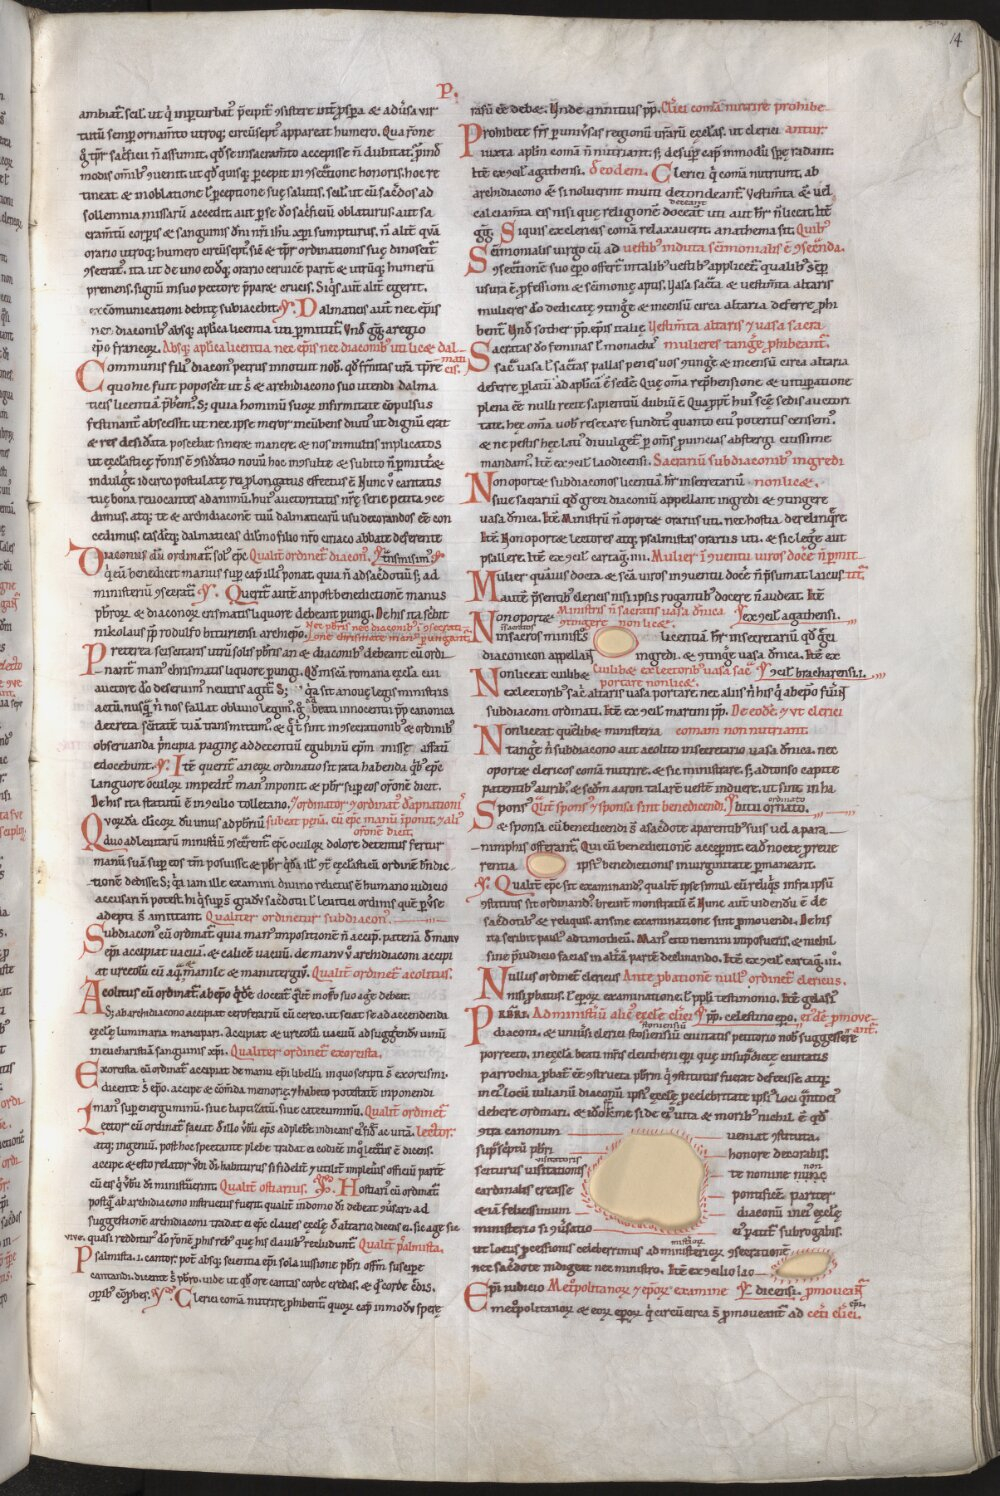 14
P.
ambiat̄ scil. ut q̇ inꝑturbat᷒ p̄cipit̄ ꝯsistere int̄ ꝓsꝑa & adũsa vir
tutũ semꝑ ornam̄to utroq; circũsept᷒ appareat humero. Qua r̄one
modis om̄ib᷒ ꝯuenit. ut qd̃ quisq; ꝑcepit in ꝯsecr̄tione honoris. hoc re
tineat & in oblatione ł ꝑceptione suę salutis. scil. ut cũ sac̄dos ad
sollemnia missarũ accedit. aut ꝑ se d̃o sac̄ficiũ oblaturus. aut sa
cram̄tũ corꝑis & sanguinis dn̄i nr̄i ih̄u xp̄i sumpturus. n̄ alit̄
orario utroq; humero circũsept᷒. sic & tp̄r ordinationis suę dinoscit̄
ꝯsecrat᷒. ita ut de uno eodēq; orario ceruicē parit̄ & utrũq; humerũ
premens. signũ in suo pectore p̄parẹ crucis. Siq̇s aut̄ alit̄ egerit.
excōmunicationi debitę subiacebit. Dalmaticis aut̄ nec ep̄is
nec diaconib᷒ absq; aplica licentia uti ꝑmittit̄. Vnd̃ gg̃. aregio
ep̄o francoꝝ. Absq; aplica licentia nec ep̄is nec diaconib᷒ uti licẹ dal
maticis.
Communis fili᷒ diacon᷒ petrus innotuit nob̃. qd̃ fr̄nitas ur̄a tp̄re
quo hic fuit poposcit ut s̃ & archidiacono suo utendi dalma
ticis licentiā p̄bem᷒. S; quia hominũ suoꝝ infirmitate cōpulsus
festinant̄ abscessit. ut nec ipse meror meũbens diuti᷒ ut dignũ erat
& res desid̄ata poscebat sineret manere & nos in multis implicatos
dimus. atq; te & archidiaconē tuũ dalmaticarũ usu decorandos eē con
cedimus. easdēq; dalmaticas dil̄mo filio nr̄o ciriaco abbate deferente
Diaconus dũ ordinat̄ sol᷒ ep̄c Qualit̄ ordinet̄ diacon᷒.
q̇ eũ benedicit manus suꝑ cap̄ illi᷒ ponat. quia n̄ ad sac̄dotiũ s; ad
ministeriũ ꝯsecrat̄. Querit̄ autē an post benedictionē manus
p̄br̄oꝝ & diaconoꝝ crismatis liquore debeant ꝑungi. De his ita sc̄bit
nikolaus pp̄ rodulfo bituriensi archiep̄o. Nec p̄br̄is nec diaconib᷒ ꝯsecrati
one chrismate man᷒ ꝑungant̄.
Preterea sciscitaris utrũ solis p̄br̄is an & diaconib᷒ debeant cũ ordi
nant̄ man᷒ chrismatis liquore ꝑungi. Qd̃ in sc̄a romana ęccl̄a cui
auctore d̃o deseruim᷒ neutris agit̄. S; q̇a sit a nouę legis ministris
actũ. nusq̃ n̄ nos fallat obliuio legim᷒. beati innocentii pp̄ canonica
decreta
obseruanda p̄cipia paginę ad decentiũ egubinũ ep̄m missę affati
edocebunt. Itē querit̄ an eoꝝ ordinatio sit rata habenda q̇b᷒ ep̄c
languore oculoꝝ impedit᷒ man᷒ imponit & p̄br̄ suꝑ eos or̄onē dicit.
De his ita statutũ ē in ꝯcilio tolletano.
Quorũdā clericoꝝ dũ unus ad p̄br̄iũ subeat penā. cũ ep̄c manũ īponit. & ali᷒
or̄onē dicit.
duo ad leuitarũ ministiũ ꝯsecr̄ent̄ ep̄c oculoꝝ dolore detentus fertur
manũ suā suꝑ eos tm̄ posuisse. & p̄br̄ q̇dā illis ꝯ̄t ęcclesiasticũ ordinē bn̄dic
tionē dedisse. S; q̇a iam ille examini diuino relictus ē humano iudicio
accusari n̄ potest. hi q̇ suꝑs̃ gradũ sac̄dotii ł leuitici ordinis quē ꝑũse
adepti s̃ amittant. Qualiter ordinetur subdiacon᷒.
Subdiacon᷒ cũ ordinat̄ quia man᷒ impositionē n̄ accip̄. patenā d̃ manu
ep̄i accipiat uacuā. & calicē uacuũ. de manu ũ archidiaconi accipi
at urceolũ cũ aq̃. manile & manutergiũ. Qualit̄ ordinet̄ acolitus.
Acolitus cũ ordinat̄. ab ep̄o q̇dē doceat̄ q̃lit̄ in off̄o suo agẹ debeat.
S; ab archidiacono accipiat ceroferariũ cũ cereo. ut sciat se ad accendenda
ęcc̄lę luminaria mancipari. Accipiat & urceolũ uacuũ ad suggerendũ uinũ
in eucharistiā sanguinis xp̄i. Qualiter ordinet̄ exorcista.
Exorcista cũ ordinat̄ accipiat de manu ep̄i libellũ in quo scripti s̃ exorcismi.
dicente s̃ ep̄o. accipe & cōm̄da memorię. & habeto potestatē imponendi
man᷒ suꝑ energuminũ. siue baptizatũ. siue catecuminũ. Qualit̄ ordinet̄
Lector cũ ordinat̄ faciat d̃ illo v̄bũ ep̄s ad plebē. indicans ei᷒ fidē ac uitā. lector.
atq; ingeniũ. post hec spectante plebe tradat ei codicē in q̇ lectur᷒ ē dicens.
accipe & esto relator v̄bi d̃i. habiturus si fidelit̄ & utilit̄ impleuis officiũ partē
cũ eis q̇ v̄bũ d̃i ministũerint. Qualit̄ ostiarius. Hostiari᷒ cũ ordinat̄
postq̃ ab archidiacono instructus fuerit. qualit̄ in domo d̃i debeat ꝯũsari. ad
suggestionē archidiaconi tradat ei ep̄c claues ęccl̄ę d̃ altario. dicens ei. sic age sic
viuẹ. quasi redditur᷒ d̃o r̄onē ꝓ his reb᷒ quę his clauib᷒ recludunt̄. Qualit̄ psalmista.
Psalmista .i. cantor. pot̄ absq; scientia ep̄i sola iussione p̄br̄i off̄m suscipe
cantandi. dicente s̃ p̄br̄o. uide ut qd̃ ore cantas corde credas. & qd̃ corde c̄dis.
opib᷒ cōꝓbes. Clerici comā nutrire ꝓhibent̄. quoꝝ cap̄ inmodũ sperę
rasũ eē debẹ. Vnde annitius pp̄. Cl̄ici comā nutrire prohibe
Prohibete fr̄s ꝑ univ̄sas regionũ ur̄arũ ęccl̄as. ut clerici antur.
iuxta apl̄m comā n̄ nutriant. s; desuꝑ cap̄ inmodũ spẹ radant.
Itē ex ꝯcil̄ agathensi. d̃ eodem. Clerici q̇ comā nutriunt. ab
archidiacono & si noluerint inuiti detondeant̄. Vestim̄ta & uel
deceant
calciam̄ta eis nisi quę religionē doceat̄ uti aut hr̄e n̄ liceat. Itē
gg̃. Siquis ex clericis comā relaxauerit. anathema sit. Quib᷒
Sc̄imonialis virgo cũ ad uestib᷒ induta sc̄imonialis ē ꝯsecr̄anda.
ꝯsecr̄tionē suo ep̄o offert̄ in talib᷒ uestib᷒ applicet̄. qualib᷒ sēꝑ
usura ē. ꝓfessioni & sc̄imonię aptis. Vasa sac̄ta & uestim̄ta altaris
mulieres d̃o dedicatę ꝯtingẹ & incensũ circa altaria deferre ꝓhi
bent̄. Vnd̃ sother pp̄. ep̄is italię Vestim̄ta altaris & uasa sacra
Sacratas d̃o feminas ł monachas mulieres tangẹ ꝓhibeant̄.
sac̄ uasa ł sac̄tas pallas penes uos ꝯtingẹ & incensũ circa altaria
deferre ꝑlatũ ad aplicā ē sedē. Quę om̄a rep̄hensione & uituꝑatione
plena eē nulli recte sapientiũ dubiũ ē. Quapp̄t hui᷒ sc̄ę sedis auctori
tate. hęc om̄a uob̃ resecare fundit᷒ quanto citi᷒ poteritis censem᷒.
& ne pestis hęc lati᷒ diuulget̄ ꝑ om̄s ꝓuincias abstergi citissime
mandam᷒. Itē ex ꝯcil̄ laodicensi. Sacrariũ subdiaconib᷒ ingredi
Non oportẹ subdiaconos licentiā hr̄e in secretariũ non licẹ.
siue sacrariũ qd̃ greci diaconiũ appellant ingredi & ꝯtingere
uasa dn̄ica. Itē. Ministrũ n̄ oportẹ orariis uti. nec hostia derelinq̃re
Itē. Non oportẹ lectores atq; psalmistas orariis uti. & sic legẹ aut
psallere. Itē ex ꝯcil̄ cartaḡ .iiii. Mulier ī ꝯuentu uiros docẽ n̄ ꝑmit
Mulier quāuis docta & sc̄a uiros in ꝯuentu docẽ n̄ p̄sumat. laicus tit̄.
autē p̄sentib᷒ clericis nisi ipsis rogantib᷒ docere n̄ audeat. Itē
Non oportẹ Ministris n̄ sacratis uasa dn̄ica ex ꝯcil̄ agathensi.
ꝯtingere non licẹ.
insacros ministros licentiā hr̄e in secretariũ qd̃ g̃ci
diaconicon appellant̄ ingredi. & ꝯtingẹ uasa dn̄ica. Itē ex
Non liceat cuilibẹ Cuilibẹ ex lectorib᷒ uasa sac̄ ꝯcil̄ bracharensi .i.
portare non licẹ.
ex lectorib᷒ sac̄ altaris uasa portare nec aliis n̄ his q̇ ab ep̄o
subdiaconi ordinati. Itē ex ꝯcil̄ martini pp̄. De eodē & ut clerici
Non liceat quęlibẹ ministeria comam non nutriant.
tangẹ n̄ subdiacono aut acolito in secretario uasa dn̄ica. nec
oportẹ clericos comā nutrire. & sic ministrare. s; adtonso capite
patentib᷒ aurib᷒. & sed̄m aaron talarē uestē induere. ut sint in ha
ordinato
Spons᷒ Qlit̄ spons᷒ & sponsa sint benedicendi. bitu ornato.
& sponsa cũ benedicendi s̃ a sac̄dote a parentib᷒ suis uel a para
nimphis offerant̄. Qui cũ benedictionē acceꝑint. eadē nocte ꝓ reue
rentia ipsi᷒ benedictionis in uirginitate ꝑmaneant.
Qualit̄ ep̄c sit examinand᷒. qualit̄ ipse simul cũ reliq̇s infra ipsũ
ꝯstitutis sit ordinand᷒. breuit̄ monstratũ ē. Nunc aut̄ uidendũ ē de
sac̄dotib᷒ & reliquis. an sine examinatione sint ꝓmouendi. De his
ita scribit paul᷒ ad timotheũ. Man᷒ cito nemini imposueris. & nichil
sine p̄iudicio facias in alt̄ā partē declinando. Itē ex ꝯcil̄ cartaḡ .iii.
Nullus ordinet̄ clericus Ante ꝓbationē null᷒ ordinet̄ clericus.
n̄ nisi ꝓbatus. ł ep̄oꝝ examinatione. ł ppl̄i testimonio. Itē gelasi᷒
pp̄. celestino ep̄o.
Presbr̄i. Ad ministiũ alic᷒ ęcclę clici ei᷒dē ꝓmoue
ant̄.
diaconi. & uniũsi clerici stosiensiũ ciuitatis petitorio nob̃ suggessere
porrecto. in ęccl̄a beati m̄ris eleutherii ep̄i quę in sup̄dictę ciuitatis
parrochia ꝓbat̄ eē ꝯstructa p̄br̄m q̇ ꝯstitutus fuerat defecisse. atq;
in ei᷒ locũ iulianũ diaconũ ipsi᷒ ęcclę
debere ordinari. & idō si de ei᷒ uita & morib᷒ nichil ē qd̃
ꝯt̄ canonum ueniat ꝯstituta.
sup̄sc̄ptũ p̄br̄i honore decorabis.
visitatoris
sciturus uisitationis te nomine non
cardinalis creasse pontificē. pariter
& iā felicissimum diaconũ in ei᷒ ęccl̄ę
ministerio si ꝯũsatio ei᷒ patit̄ subrogabis.
ut locus ꝓcessionis celeberrimus ad ministerioꝝ ꝯsecrationē
nec sac̄dote indigeat nec ministro. Itē ex ꝯcilio lao
dicensi.
Ep̄i iudicio Met̄opolitanoꝝ & ep̄oꝝ examine ꝓmoueant̄
met̄opolitanoꝝ & eoꝝ ep̄oꝝ q̇ circũcirca s̃ ꝓmoueant̄ ad cet̄i cl̄ici.